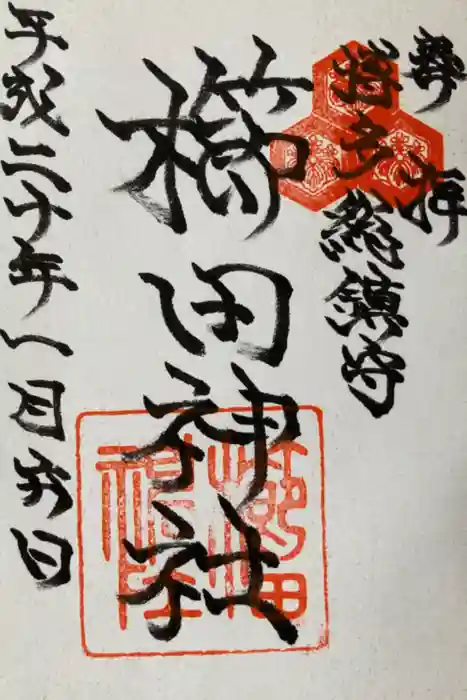 奉拝
博多總鎮守
櫛田神社
櫛田神社
平成三十年一月日